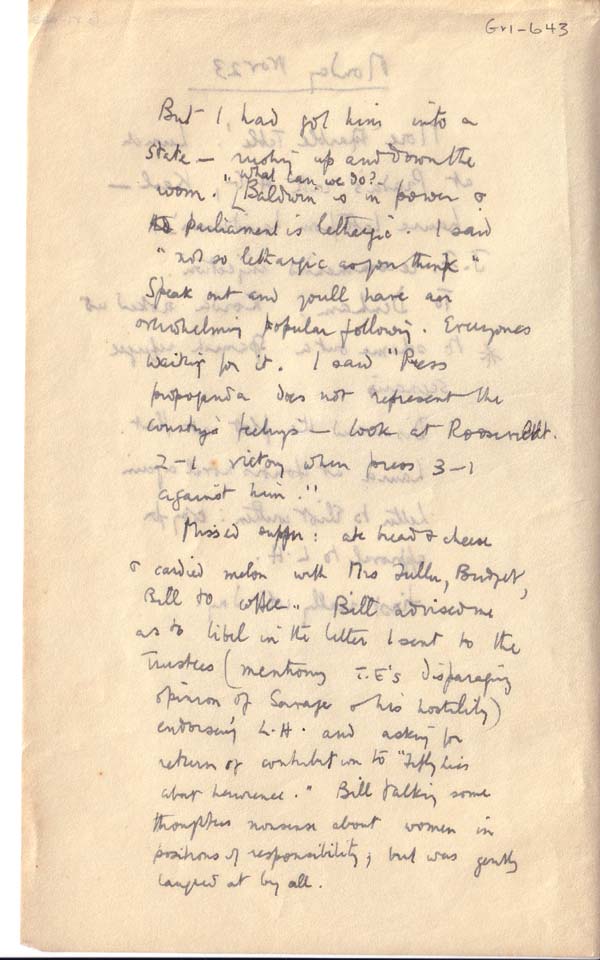 Gri-643
But I had got him into a
state — rushing up and down the
room. "What can we do?
[Baldwin is in power &
Parliament is lethargic. I said
"not so lethargic as you think"
Speak out and youll have an
overwhelming popular following. Everyones
waiting for it. I said "Press
propaganda does not represent the
country's feelings — look at Roosevelt.
2-1 victory when press 3-1
against him."
Missed supper: ate bread & cheese
& candied melon with Mrs Fuller, Bridget,
Bill & coffee. Bill advised me
as to libel in the letter I sent to the
Trustees (mentioning T.E's disparaging
opinion of Savage & his hostility)
endorsing L.H. and asking for
return of contribution to "Fifty
about Lawrence." Bill talking some
thoughtless nonsense about women in
positions of responsibility; but was gently
laughed at by all.